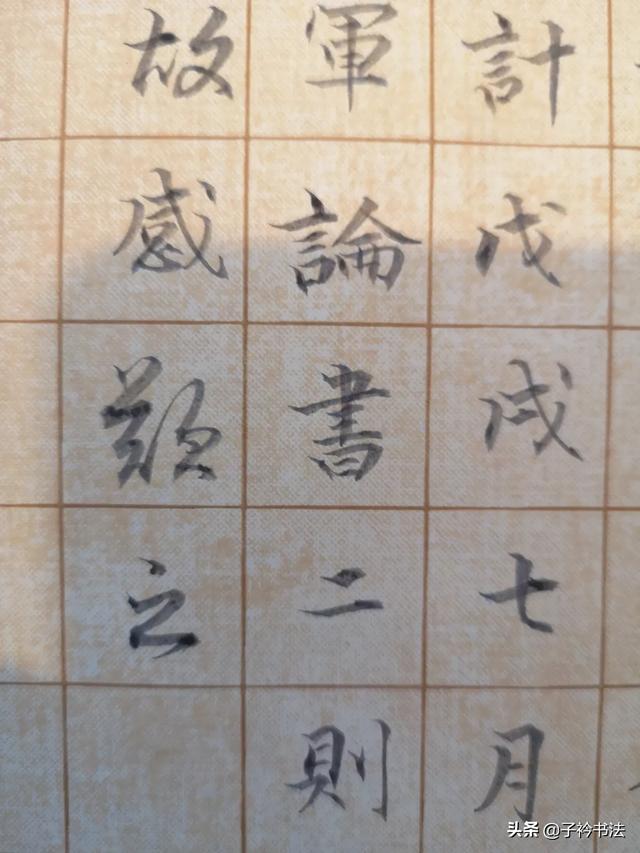 計戊戌七月
軍論書二則
故感歎之
头条 @子衿书法